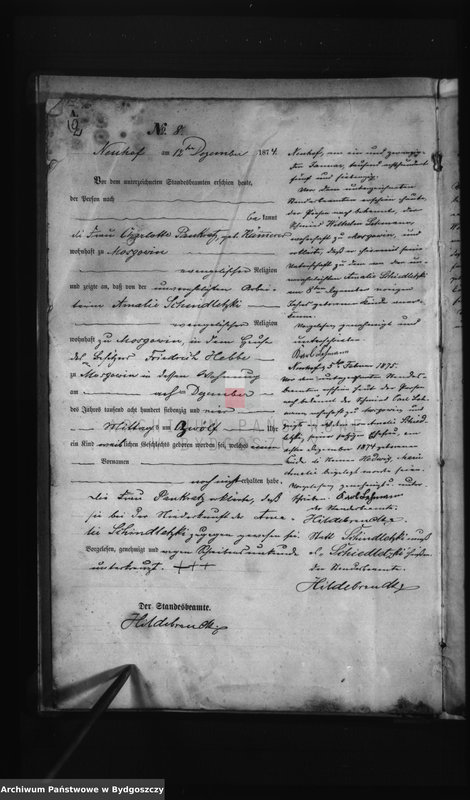 No. 8.
Neuhof am 12ten Dezember 1874.
Vor dem unterzeichneten Standesbeamten erschien heute,
der Person nach
bekannt
die Frau Charlotte Pankratz geb.
wohnhaft zu Morgowin
evangelischer Religion
und zeigte an, daß von der unverehelichten Arbei-
terin Amalie Schindletzki
evangelischer Religion
wohnhaft zu Morgowin, in dem Hause
des Besitzers Friedrich
zu Morgowin in dessen Wohnung
am Dezember
des Jahres tausend acht hundert siebenzig und vier
Mittags um zwölf Uhr
ein Kind weiblichen Geschlechts geboren worden sei, welches einen
Vornamen
noch nicht erhalten habe.
Die Frau Pankratz erklärte, daß
sie bei der Niederkunft der Ama-
lie Schindletzki zugegen gewesen sei
Vorgelesen, genehmigt und wegen Schreibensunkunde
unterkreuzt. +++
Der Standesbeamte.
Hildebrandt
Neuhof, am ein und zwanzig-
sten Januar, tausend achthundert
fünf und siebenzig.
Vor dem unterzeichneten
Standesbeamten erschien heute,
der Person nach bekannt, der
Schmied Wilhelm Lehmann,
wohnhaft zu Morgowin, und
erklärte, daß er hiermit seine
Vaterschaft zu dem von der un-
verehelichten Amalie Schindletzki
am 8ten Dezember vorigen
Jahres geborenen Kinde aner-
kenne.
Vorgelesen genehmigt und
unterschrieben
Karl Lehmann
Neuhof, 5ten Februar 1875.
Vor dem unterzeichneten Standes-
beamten erschien heute der Person
nach bekannt der Schmied Carl Leh-
mann wohnhaft zu Morgowin und
zeigte an, daß dem von Amalie Schind-
letzki,
Dezember 1874 geborenen
Kinde die Namen Hedwig Marie
Amalie beigelegt worden seien.
Vorgelesen genehmigt unter-
schrieben. Karl Lehmann
der Standesbeamte.
Hildebrandt
Statt Schindletzki muß
es Schiedletzki heißen
der Standesbeamte.
Hildebrandt
Archiwum Państwowe w Bydgoszczy